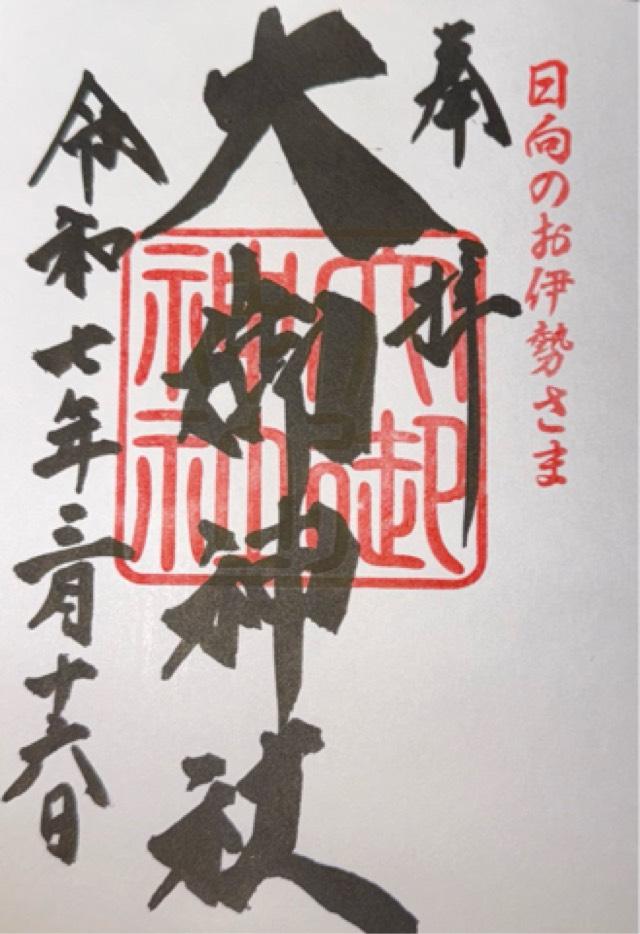 日向のお伊勢さま
奉拝
大御神社
令和七年三月十六日